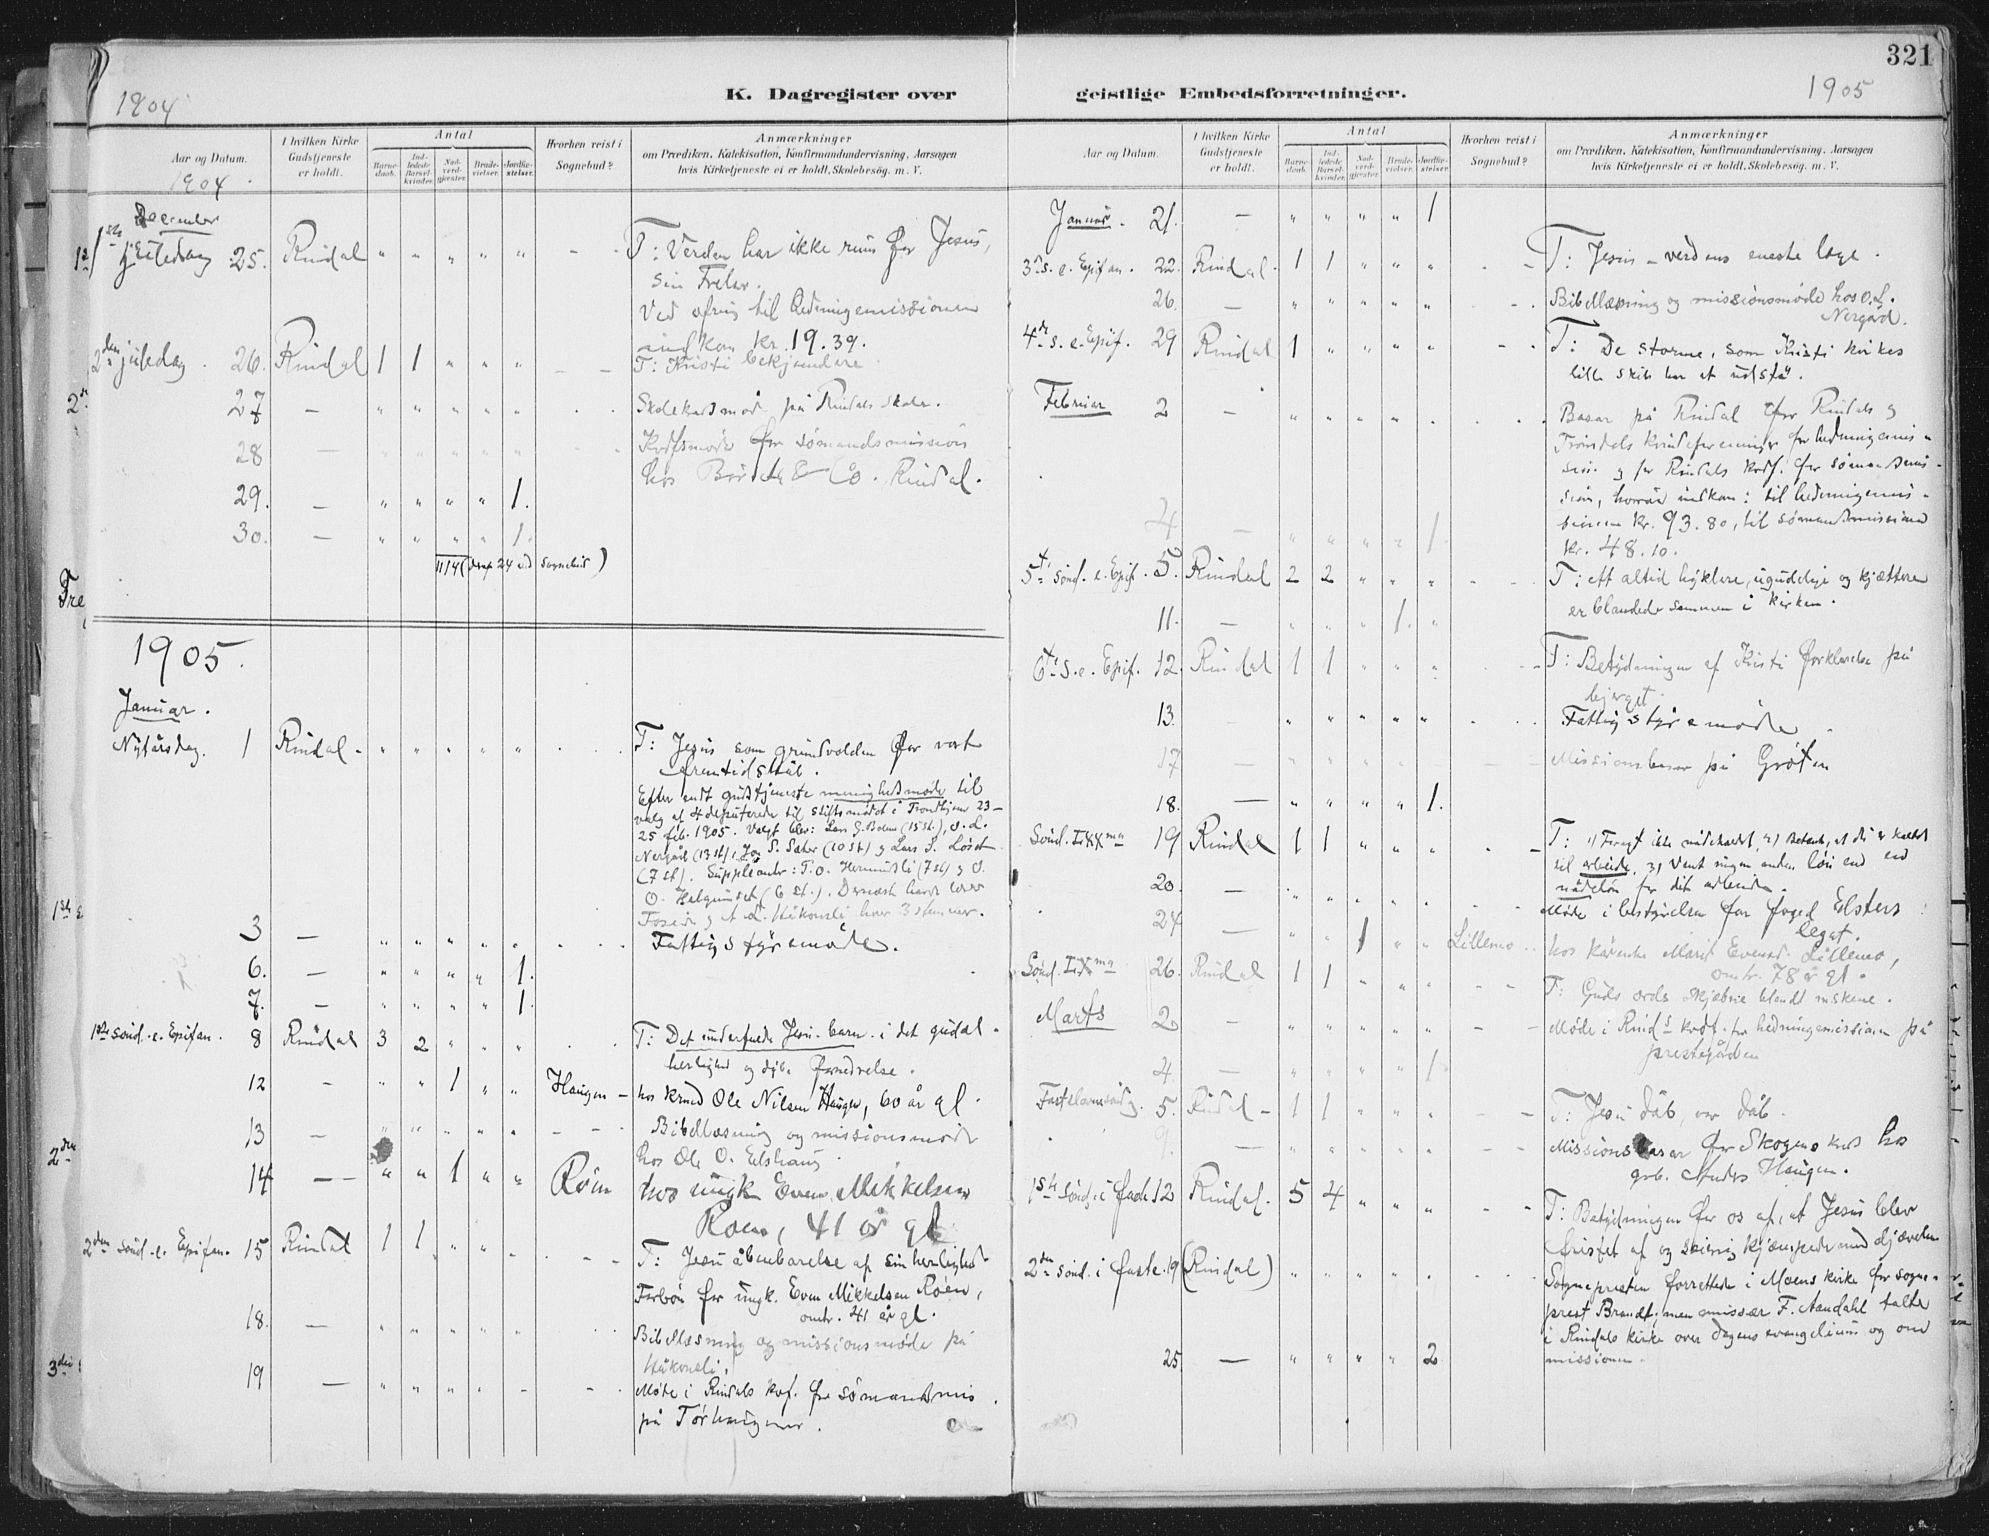 321
1904
K. Dagregister over
Aar og Datum.
I hvilken Kirke Gudstjeneste er holdt.
Antal
Barne-daab.
Ind-ledede Barsel-kvinder.
Nad-verd-gjester.
Brude-vielser.
Jordfæ-stelser.
Hvorhen reist i Sognebud?
Anmærkninger
om Prædiken, Katekisation, Konfirmandundervisning, Aarsagen
hvis Kirketjeneste ei er holdt, Skolebesøg. m. V.
1904
December
1ste juledag 25. Rindal " " " " " - - T: Verden har ikke rum for Jesus,
sin Frelser.
Ved ofring til hedningemissionen
indkom kr. 19.39.
2den juledag. 26. Rindal 1 1 " " " - - T: Kristi bekjendere
27 - " " " " " . . Skolekredsmøde på Rindals skole.
28 - " " " " " - - Kvdfsmøde for sømandsmission
hos & Co. Rindal.
29. - " " " " 1.
30. - " " " " 1.
1114 (deraf 24 ved sognebud)
1905.
Januar.
Nytårsdag. 1 Rindal - " " " " " . . T: Jesus som grundvolden for vort
fremtidshåb.
Efter endt gudstjeneste menighedsmøde til
valg af 4 deputerede til stiftsmødet i Trondhjem 23–
25 feb. 1905. Valgt blev: Lars G. Bolme (15 st.), O. L.
Nergård (13 st.), Jon S. Sæter (10 st) og Lars S. Løset
(7 st). Suppleanter: T. O. Hermundsli (7 st) og O.
O. Halgunset (6 st.). Dernæst havde
og A. L. Håkonsli hver 3 stemmer.
3 - " " " " " . . . Fattigstyremøde.
6. - " " " " 1.
7. - " " " " 1.
1ste sønd. e. Epifan. 8 Rindal 3 2 " " " . . T: Det underfulde Jesu-barn i det guddl.
herlighed og dybe fornedrelse.
12 - " " 1 " " Haugen - hos kmd Ole Nilsen Haugen, 60 år gl.
13 - " " " " " - - - Bibellæsning og missionsmøde
hos Ole O. Elshaug
14 - - " " 1 " " Röen hos ungk. Even Mikkelsen
Roen, 41 år gl.
2den sønd. e. Epifan. 15 Rindal 1 1 " " . . - - T: Jesu åbenbarelse af sin herlighed
Forbøn for ungk. Even Mikkelsen Röen,
omtr. 41 år gl.
18. - " " " " " . . Bibellæsning og missionsmøde på
Håkonsli.
19 - " " " " - - . Møte i Rindals kvf. for sømandsmis.
på Tørhaugmoen.
1905
geistlige Embedsforretninger.
Aar og Datum.
I hvilken Kirke Gudstjeneste er holdt.
Antal
Barne-daab.
Ind-ledede Barsel-kvinder.
Nad-verd-gjester.
Brude-vielser.
Jordfæ-stelser.
Hvorhen reist i Sognebud?
Anmærkninger
om Prædiken, Katekisation, Konfirmandundervisning, Aarsagen
hvis Kirketjeneste ei er holdt, Skolebesøg. m. V.
Januar. 21. - " " " " 1
3die s. e. Epifan. 22. Rindal. 1 1 " " " - - T: Jesus – verdens eneste læge.
26. - " " " " " - - Bibellæsning og missionsmøde hos O. L.
Nergård.
4de s. e. Epif. 29 Rindal 1 " " " " - - T: De storme, som Kristi kirkes
lille skib har at udstå.
Februar 2 - " " " " . . . Basar på Rindal for Rindals og
Trøndels kvindeforeninger for hedningemis-
sion og for Rindals kvdf. for sømandsmis-
sion, hvorav indkom: til hedningemis-
sionen kr. 93.80, til sømandsmissionen
kr. 48.10.
4 - " " " " 1.
5te sønd. e. Epif. 5. Rindal 2 2 " " " - - T: At altid hyklere, ugudelige og kjættere
er blandede sammen i kirken.
11. - " " " 1. "
6te s. e. Epif. 12. Rindal 1 1 " " " - T: Betydningen af Kristi forklarelse på
bjerget.
13. - " " " " " . . Fattigstyremøde.
17 - " " " " - - - Missionsbasar på Gröten
18. - " " " " 1.
Sønd. LXX ma 19 Rindal 1 1 " " " - - T: 1) Foragt ikke nådekaldet, 2) Betænk, at du er kaldet
til arbeide, 3) Vent ingen anden løn end en
nådeløn for dit arbeide.
20. - . " " " " . - Møde i bestyrelsen for foged Elsters
legat.
24 - " " 1 " " Lillemo .. hos kårenke Marit Evensd. Lillemo,
omtr. 78 år gl.
Sønd. LX ma 26. Rindal 1 1 " " " - - T: Guds ords skjæbne blandt mskene.
Marts 2 - " " " " " - - Møde i Rinds kvdf. for hedningemissionen på
prestegården
4. - " " " " 1
Fastelavnssøndg. 5. Rindal - 1 1 " " " - - T: Jesu dåb, vor dåb.
9. - " " " " " - - Missionsbasar for Skogens kreds hos
grb. Anders Haugen.
1ste sønd. i faste 12 Rindal. 5 4 " " " - - T: Betydningen for os af, at Jesus blev
fristet af og seirrig kjæmpede med djævelen
2den sønd. i faste. 19 (Rindal) " " " " . . . Sognepresten forrettede i Moens kirke for sogne-
prest Brandt, men missær F. Aandahl talte
i Rindals kirke over dagens evangelium og om
missionen.
25 - " " " " 2.